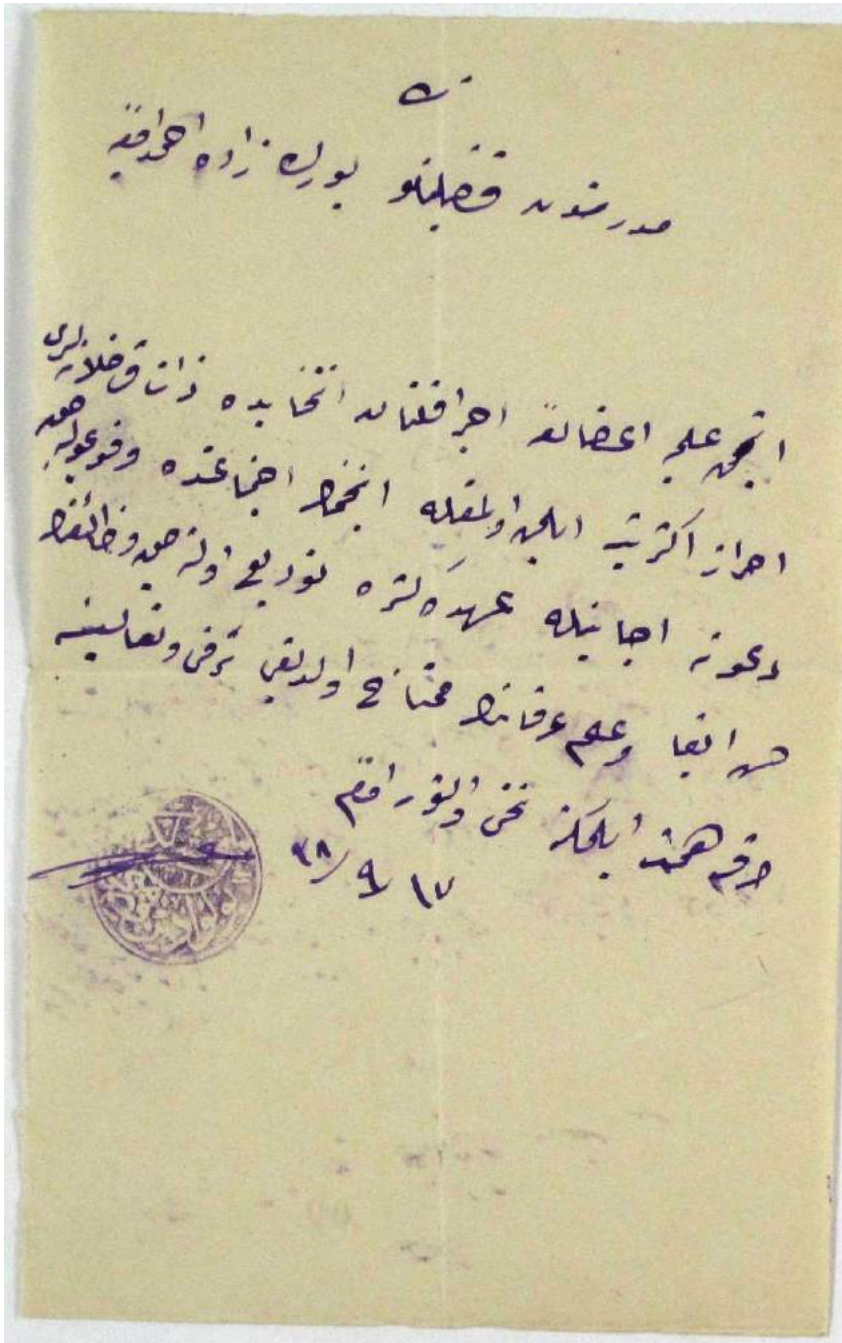 مدرسیندن فضیلتلو بورك زاده احمد افندی یه
انجمن علمی اعضالغنه اجرا قلنان انتخابده ذات فاضلانه لری
احراز اكثریت ایلمش اولمغله انجمنك اجتماعنده وقوعبوله جق
دعوته اجابتله عهده لرینه تودیع اولنه جق وظائفك
حسن ایفا وعلم عرفانك محتاج اولدیغی ترقی وتعالیسنه
همت ایلمكز افندم
١٧/٩/٣٨